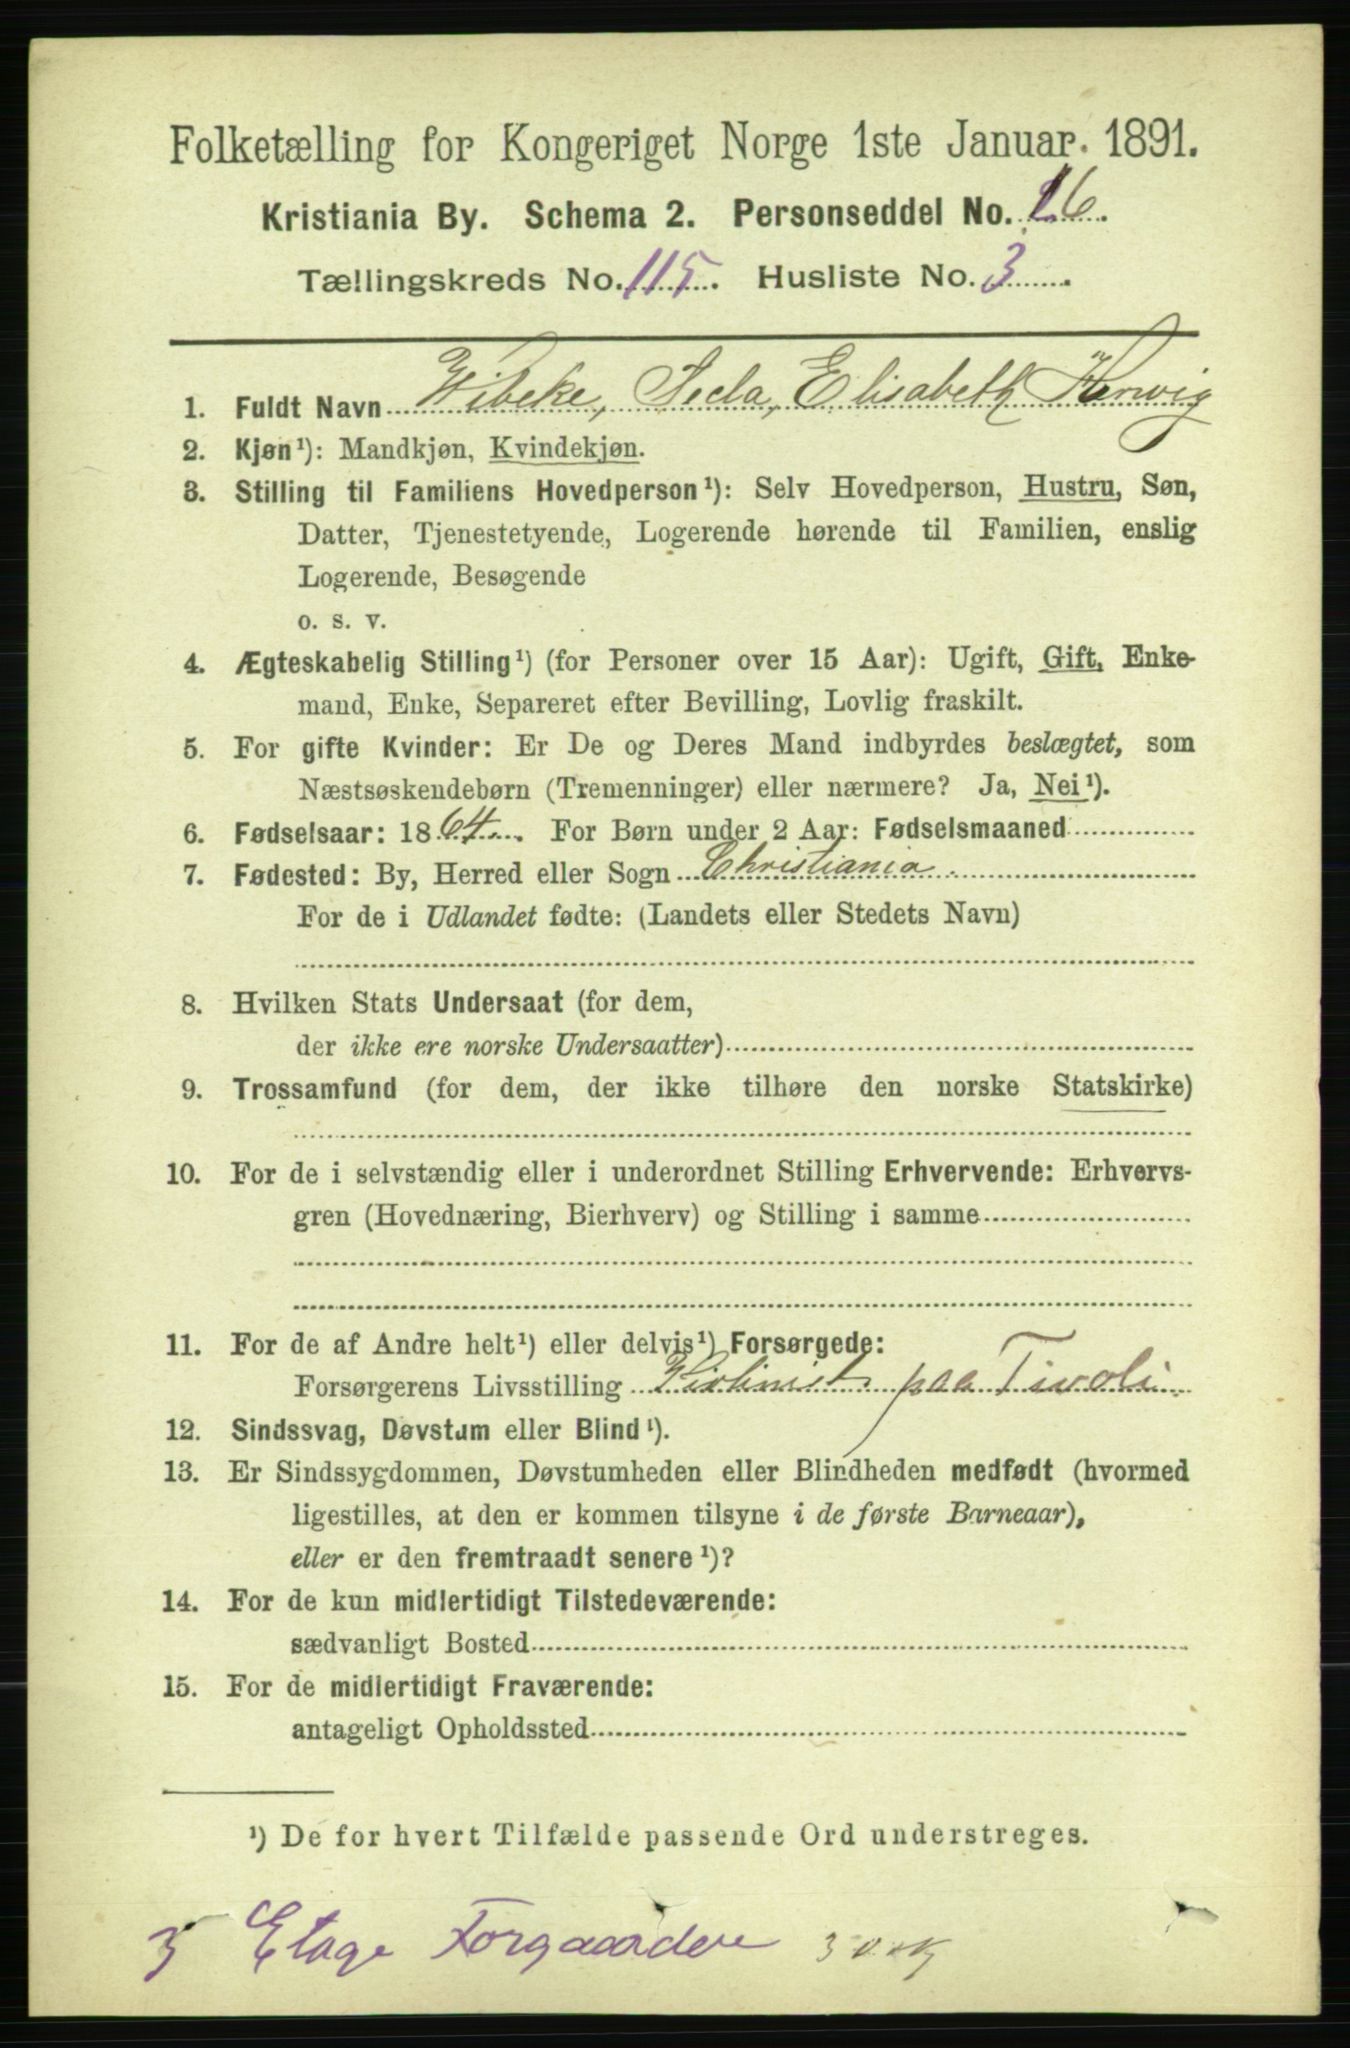 Folketælling for Kongeriget Norge 1ste Januar. 1891.
Kristiania By. Schema 2. Personseddel No. 16.
Tællingskreds No. 115. Husliste No. 3.
1. Fuldt Navn Wibeke, Secla, Elisabeth Herwig
2. Kjøn¹): Mandkjøn, Kvindekjøn.
3. Stilling til Familiens Hovedperson¹): Selv Hovedperson, Hustru, Søn,
Datter, Tjenestetyende, Logerende hørende til Familien, enslig
Logerende, Besøgende
o. s. v.
4. Ægteskabelig Stilling¹) (for Personer over 15 Aar): Ugift, Gift, Enke-
mand, Enke, Separeret efter Bevilling, Lovlig fraskilt.
5. For gifte Kvinder: Er De og Deres Mand indbyrdes beslægtet, som
Næstsøskendebørn (Tremenninger) eller nærmere? Ja, Nei¹).
6. Fødselsaar: 1864. For Børn under 2 Aar: Fødselsmaaned
7. Fødested: By, Herred eller Sogn Christiania.
For de i Udlandet fødte: (Landets eller Stedets Navn)
8. Hvilken Stats Undersaat (for dem,
der ikke ere norske Undersaatter)
9. Trossamfund (for dem, der ikke tilhøre den norske Statskirke)
10. For de i selvstændig eller i underordnet Stilling Erhvervende: Erhvervs-
gren (Hovednæring, Bierhverv) og Stilling i samme
11. For de af Andre helt¹) eller delvis¹) Forsørgede:
Forsørgerens Livsstilling Violinist paa Tivoli
12. Sindssvag, Døvstum eller Blind¹).
13. Er Sindssygdommen, Døvstumheden eller Blindheden medfødt (hvormed
ligestilles, at den er kommen tilsyne i de første Barneaar),
eller er den fremtraadt senere¹)?
14. For de kun midlertidigt Tilstedeværende:
sædvanligt Bosted
15. For de midlertidigt Fraværende:
antageligt Opholdssted
¹) De for hvert Tilfælde passende Ord understreges.
3 Etage Forgaarden